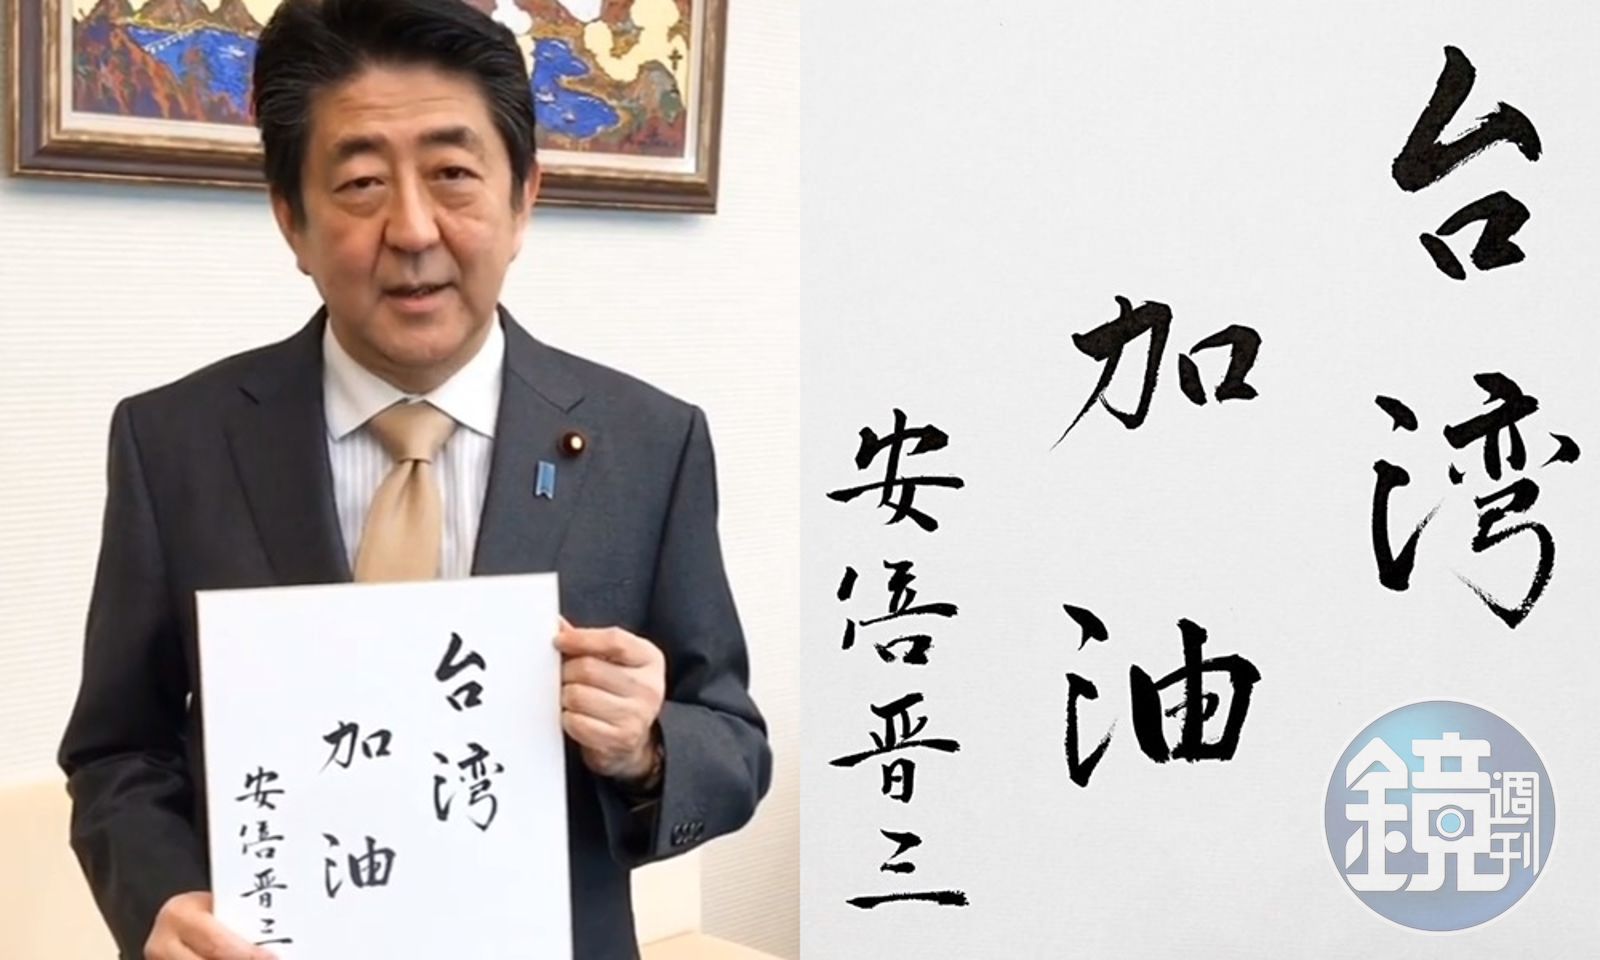 台湾
加油
安倍晋三
台湾
加油
安倍晋三
鏡週刊